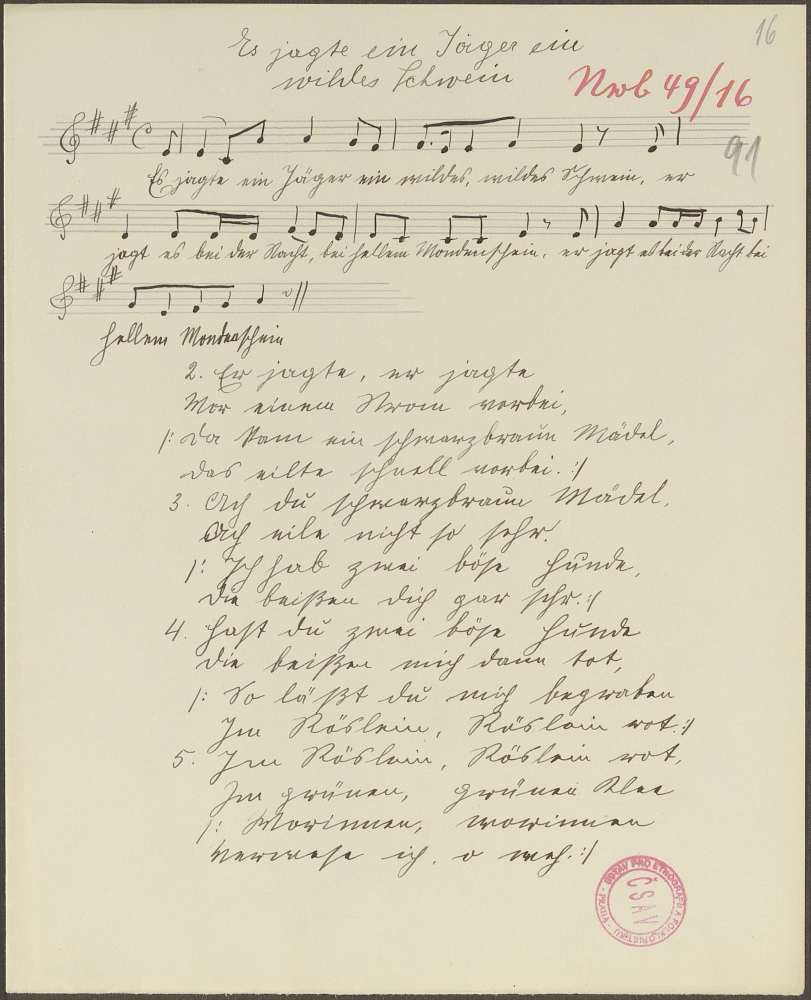 16
Es jagte ein Jäger ein
wildes Schwein
Nrb 49/16
91
Es jagte ein Jäger ein wildes, wildes Schwein, er
jagt es bei der Nacht, bei hellem Mondenschein, er jagt es bei der Nacht bei
hellem Mondenschein
2. Er jagte, er jagte
Vor einem Strom vorbei,
/: Da kam ein schwarzbraun Mädel,
das eilte schnell vorbei. :/
3. Ach du schwarzbraun Mädel,
Ach eile nicht so sehr.
/: Ich hab zwei böse Hunde,
die beißen dich gar sehr. :/
4. Hast du zwei böse Hunde
die beißen mich dann tot,
/: So läßt du mich begraben
Im Röslein, Röslein rot. :/
5. Im Röslein, Röslein rot,
Im grünen, grünen Klee
/: Worinnen, worinnen
verwese ich, o weh. :/
ÚSTAV PRO ETNOGRAFII A FOLKLORISTIKU - PRAHA -
ČSAV